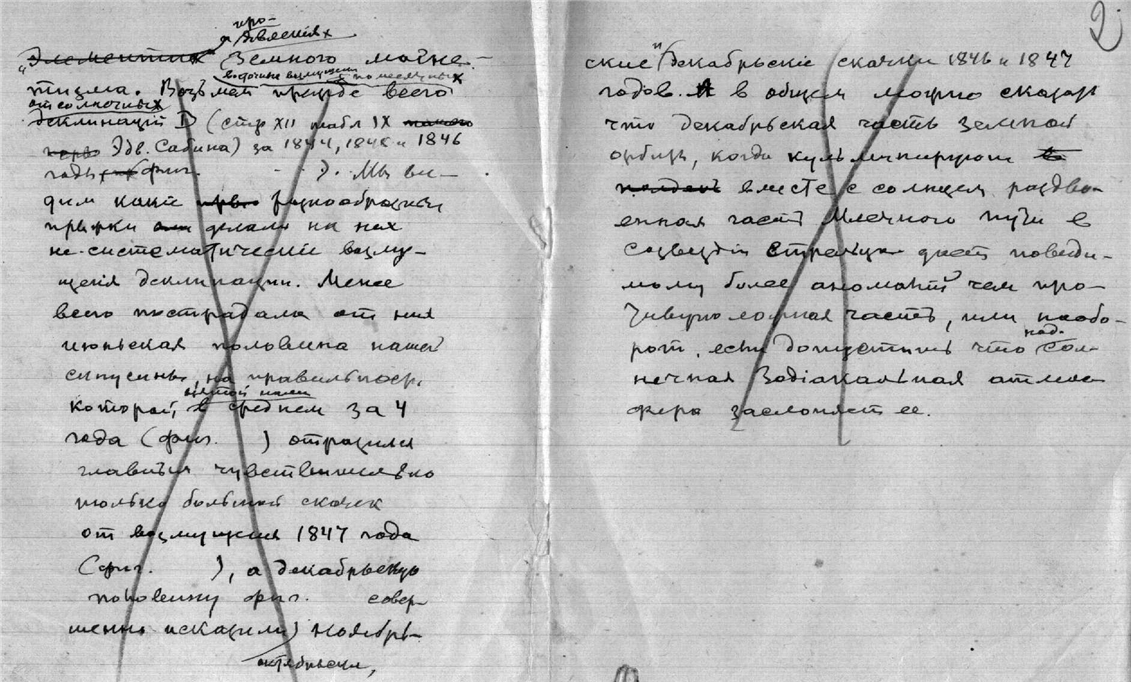 про-
явленіях
Элементик Земного магне-
восточные возмущен помесячных
тизма. Возьмем прежде всего
от солнечных
деклинацій D (стр XII табл IX
Эдв. Сабина) за 1844, 1845 и 1846
годы фиг. ). Мы ви-
дим какіе разнообразные
прыжки делали на них
не систематическіе возму-
щенія деклинаціи. Менее
всего пострадала от них
июньская половина нашей
синусины, на правильност
взятой нами
которой, в среднем за 4
года (фиг. ) отразился
главным чувствительно
только большой скачек
от возмущения 1847 года
(фиг. ), а декабрьскую
половину фиг. совер-
шенно исказили) ноябрь-
октябрьскія,
2
скіе и декабрьскіе скачки 1846 и 1847
годов. в общем можно сказат
что декабрьская часть земной
орбиты, когда кульминируют
вместе с солнцем раздво-
енная часть Млечного пути в
созвездіи Стрельца дает повиди-
мому более аномалій чем про-
тивуположная часть, или наобо-
над.
рот, если допустить что Сол-
нечная Зодіакальная атмос
фера заслоняет ее.